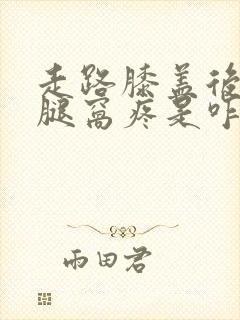 走路膝盖後
腿窩疼是咋
雨田君